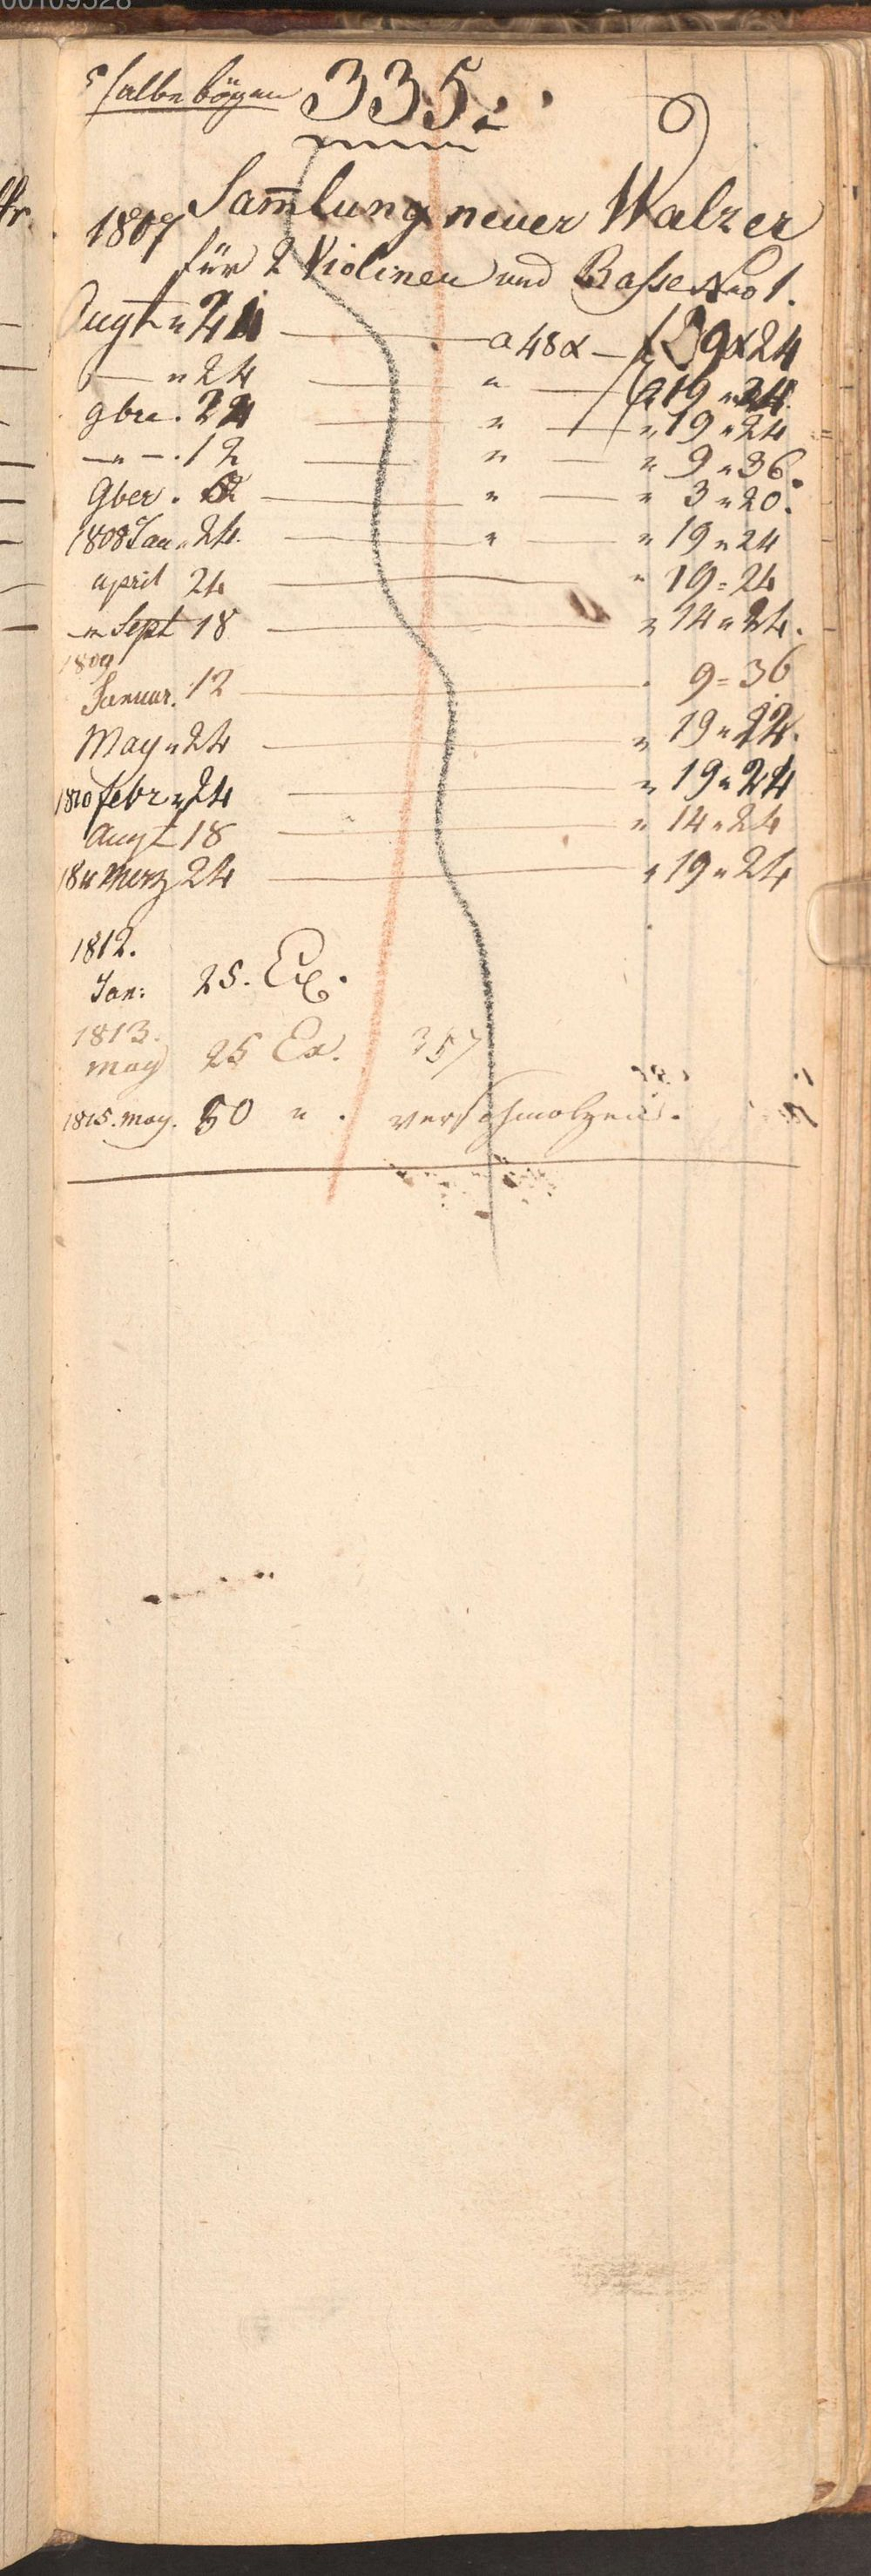 5 halbe bögen 335.
Sam̄lung neuer Walzer
1807
für 2 Violinen und Basse Nro 1.
Augt " 24 — a 48 x — f 9 x 24
— " 24 — " — 19 " 24
9bre . 24 — " — " 19 " 24
— " — . 12 — " — " 9 " 36
9ber . — " — " 3 " 20.
1808 Jan " 24. — " — " 19 " 24
april 24 — " 19 = 24
— " Sept 18 — " 14 " 24.
1809
Januar. 12 — . 9 = 36
May " 24 — " 19 "
1810 febr " 24 — " 19 " 24
Augt 18 — " 14 " 24
1811 Merz 24 — " 19 " 24
1812.
Jan: 25. Ex.
1813.
may 25 Ex. 357
1815. may. 50 " . verschmolzen.